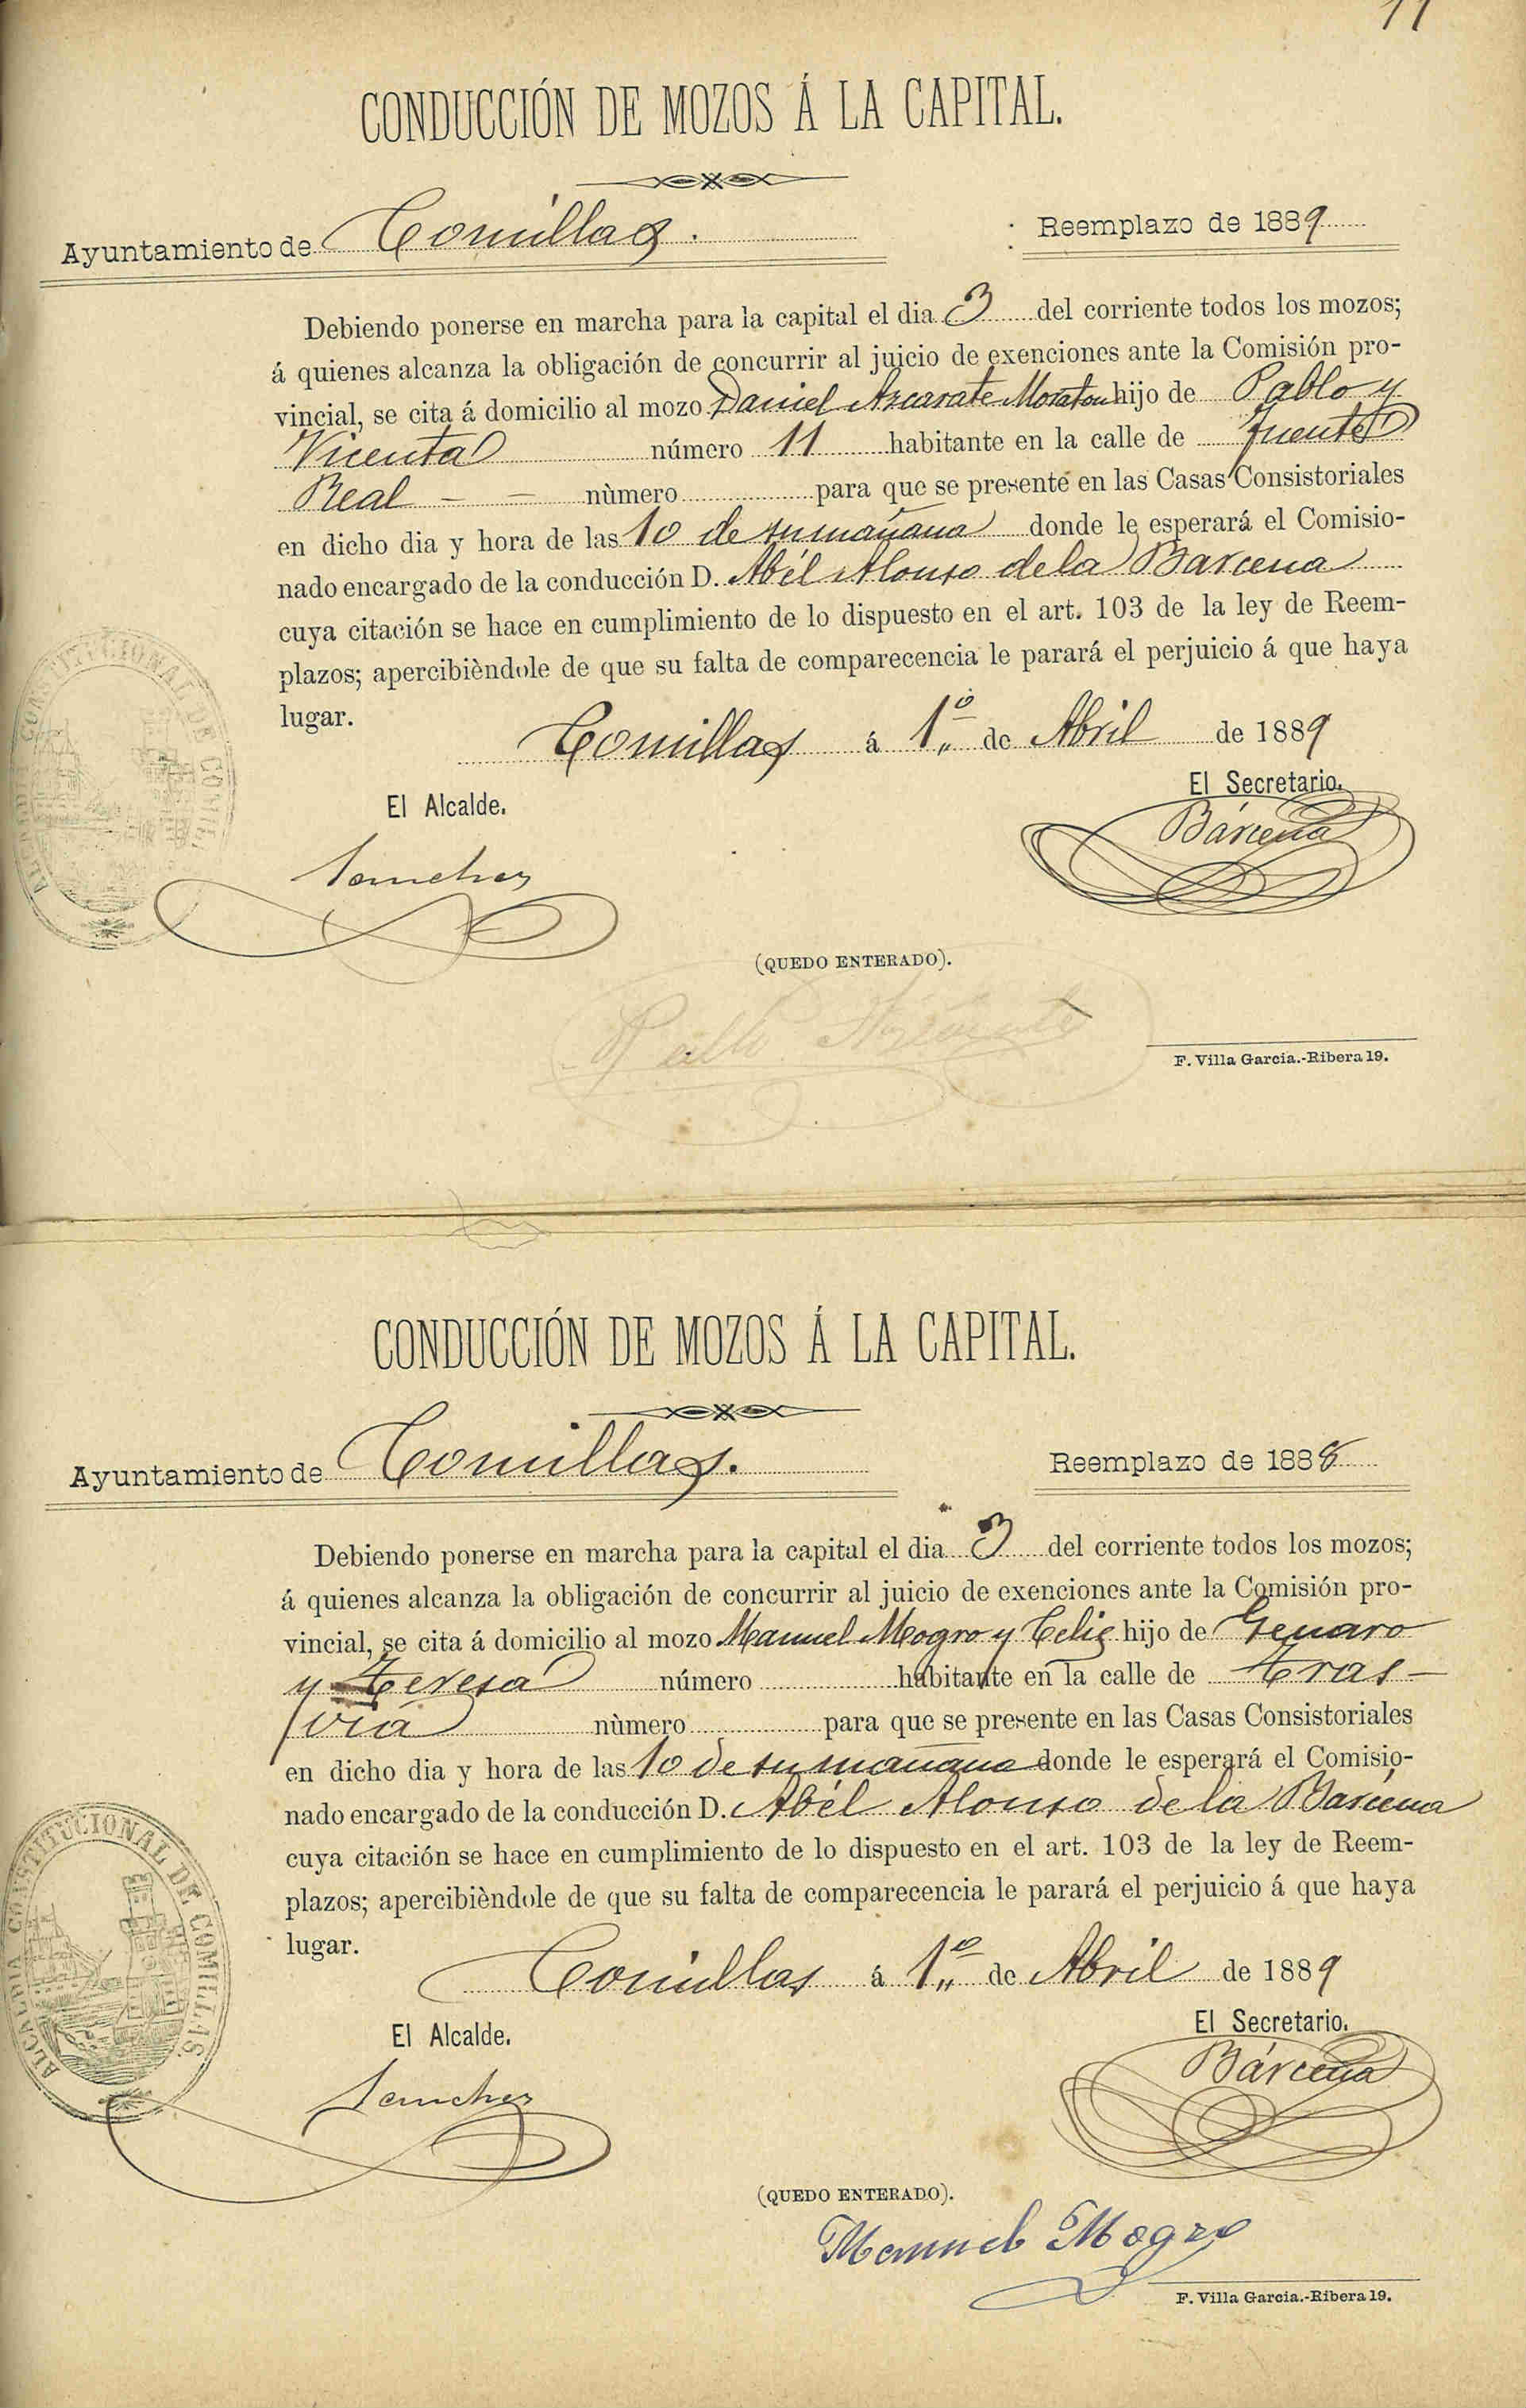 11
CONDUCCIÓN DE MOZOS Á LA CAPITAL.
Ayuntamiento de Comillas. Reemplazo de 1889
Debiendo ponerse en marcha para la capital el dia 3 del corriente todos los mozos;
á quienes alcanza la obligación de concurrir al juicio de exenciones ante la Comisión pro-
vincial, se cita á domicilio al mozo Daniel Azcarate Moraton hijo de Pablo y
Vicenta número 11 habitante en la calle de fuente
Real - - nùmero para que se presente en las Casas Consistoriales
en dicho dia y hora de las 10 de su mañana donde le esperará el Comisio-
nado encargado de la conducción D. Abél Alonso de la Barcena
cuya citación se hace en cumplimiento de lo dispuesto en el art. 103 de la ley de Reem-
plazos; apercibièndole de que su falta de comparecencia le parará el perjuicio á que haya
lugar.
Comillas á 1.º de Abril de 1889
El Alcalde. El Secretario.
Sanchez Bárcena
(QUEDO ENTERADO).
Pablo Azcarate
F. Villa Garcia.-Ribera 19.
CONDUCCIÓN DE MOZOS Á LA CAPITAL.
Ayuntamiento de Comillas. Reemplazo de 1888
Debiendo ponerse en marcha para la capital el dia 3 del corriente todos los mozos;
á quienes alcanza la obligación de concurrir al juicio de exenciones ante la Comisión pro-
vincial, se cita á domicilio al mozo Manuel Mogro y Celis hijo de Genaro
y Teresa número habitante en la calle de Tras-
via nùmero para que se presente en las Casas Consistoriales
en dicho dia y hora de las 10 de su mañana donde le esperará el Comisio-
nado encargado de la conducción D. Abél Alonso de la Barcena
cuya citación se hace en cumplimiento de lo dispuesto en el art. 103 de la ley de Reem-
plazos; apercibièndole de que su falta de comparecencia le parará el perjuicio á que haya
lugar.
Comillas á 1.º de Abril de 1889
ALCALDIA CONSTITUCIONAL DE COMILLAS.
El Alcalde. El Secretario.
Sanchez Bárcena
(QUEDO ENTERADO).
Manuel Mogro
F. Villa Garcia.-Ribera 19.